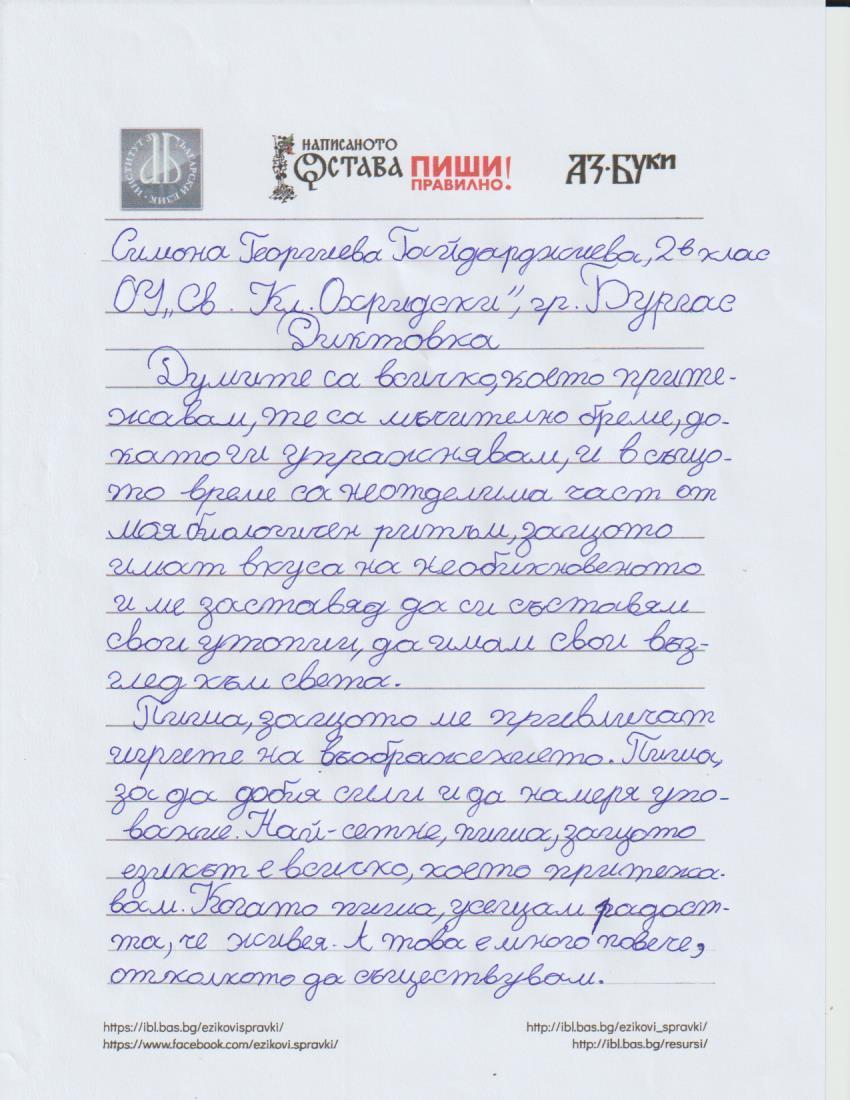 ИНСТИТУТ ЗА БЪЛГАРСКИ ЕЗИК
НАПИСАНОТО
ОСТАВА ПИШИ
ПРАВИЛНО!
АЗ·БУКИ
Симона Георгиева Гайдарджиева, 2в клас
ОУ „Св. Кл. Охридски", гр. Бургас
Диктовка
Думите са всичко, което прите-
жавам, те са мъчително бреме, до-
като ги упражнявам, и в също-
то време са неотделима част от
моя биологичен ритъм, защото
имат вкуса на необикновеното
и ме заставяд да си съставям
свои утопии, да имам свои въз-
глед към света.
Пиша, защото ме привличат
игрите на въображението. Пиша,
за да добия сили и да намеря упо-
вание. Най-сетне, пиша, защото
езикът е всичко, което притежа-
вам. Когато пиша, усещам радост-
та, че живея. А това е много повече,
отколкото да съществувам.
https://ibl.bas.bg/ezikovispravki/
http://ibl.bas.bg/ezikovi_spravki/
https://www.facebook.com/ezikovi.spravki/
http://ibl.bas.bg/resursi/